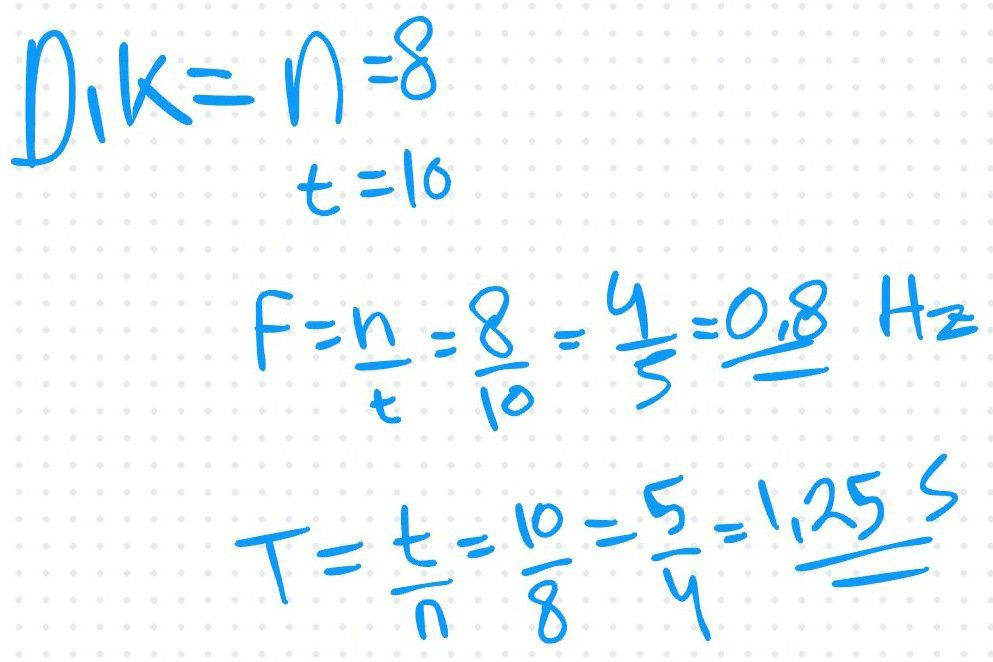 Dik= n=8
t=10
F=n/t=8/10=4/5=0,8 Hz
T=t/n=10/8=5/4=1,25 s